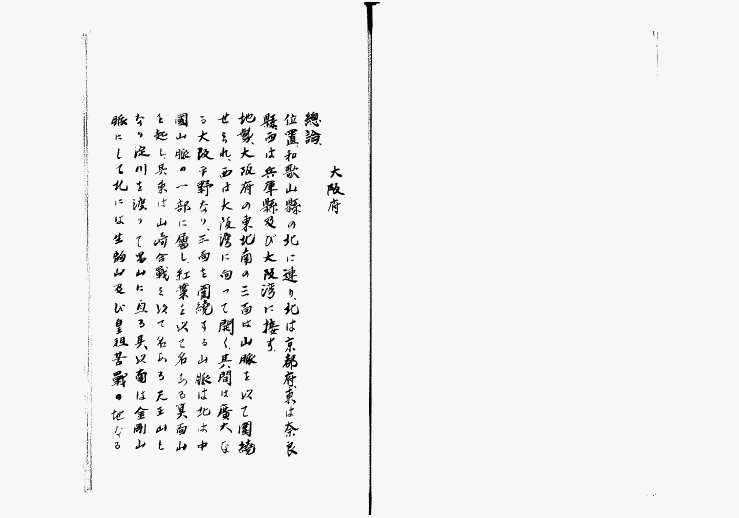 大阪府
總論
位置、和歌山縣の北に連り、北は京都府、東は奈良
縣西は兵庫縣及び大阪湾に接す。
地勢、大阪府の東北南の三面は山脈を以て圍繞
せられ、西は大阪湾に向つて開く、其間は廣大な
る大阪平野なり、三面を圍繞する山脈は北は中
國山脈の一部に屬し紅葉を以て名ある箕面山
を起し其東は山崎合戰を以て名ある天王山と
なり淀川を渡りて男山に亘る其以南は金剛山
脈にして北には生駒山及び皇祖苦戰の地なる